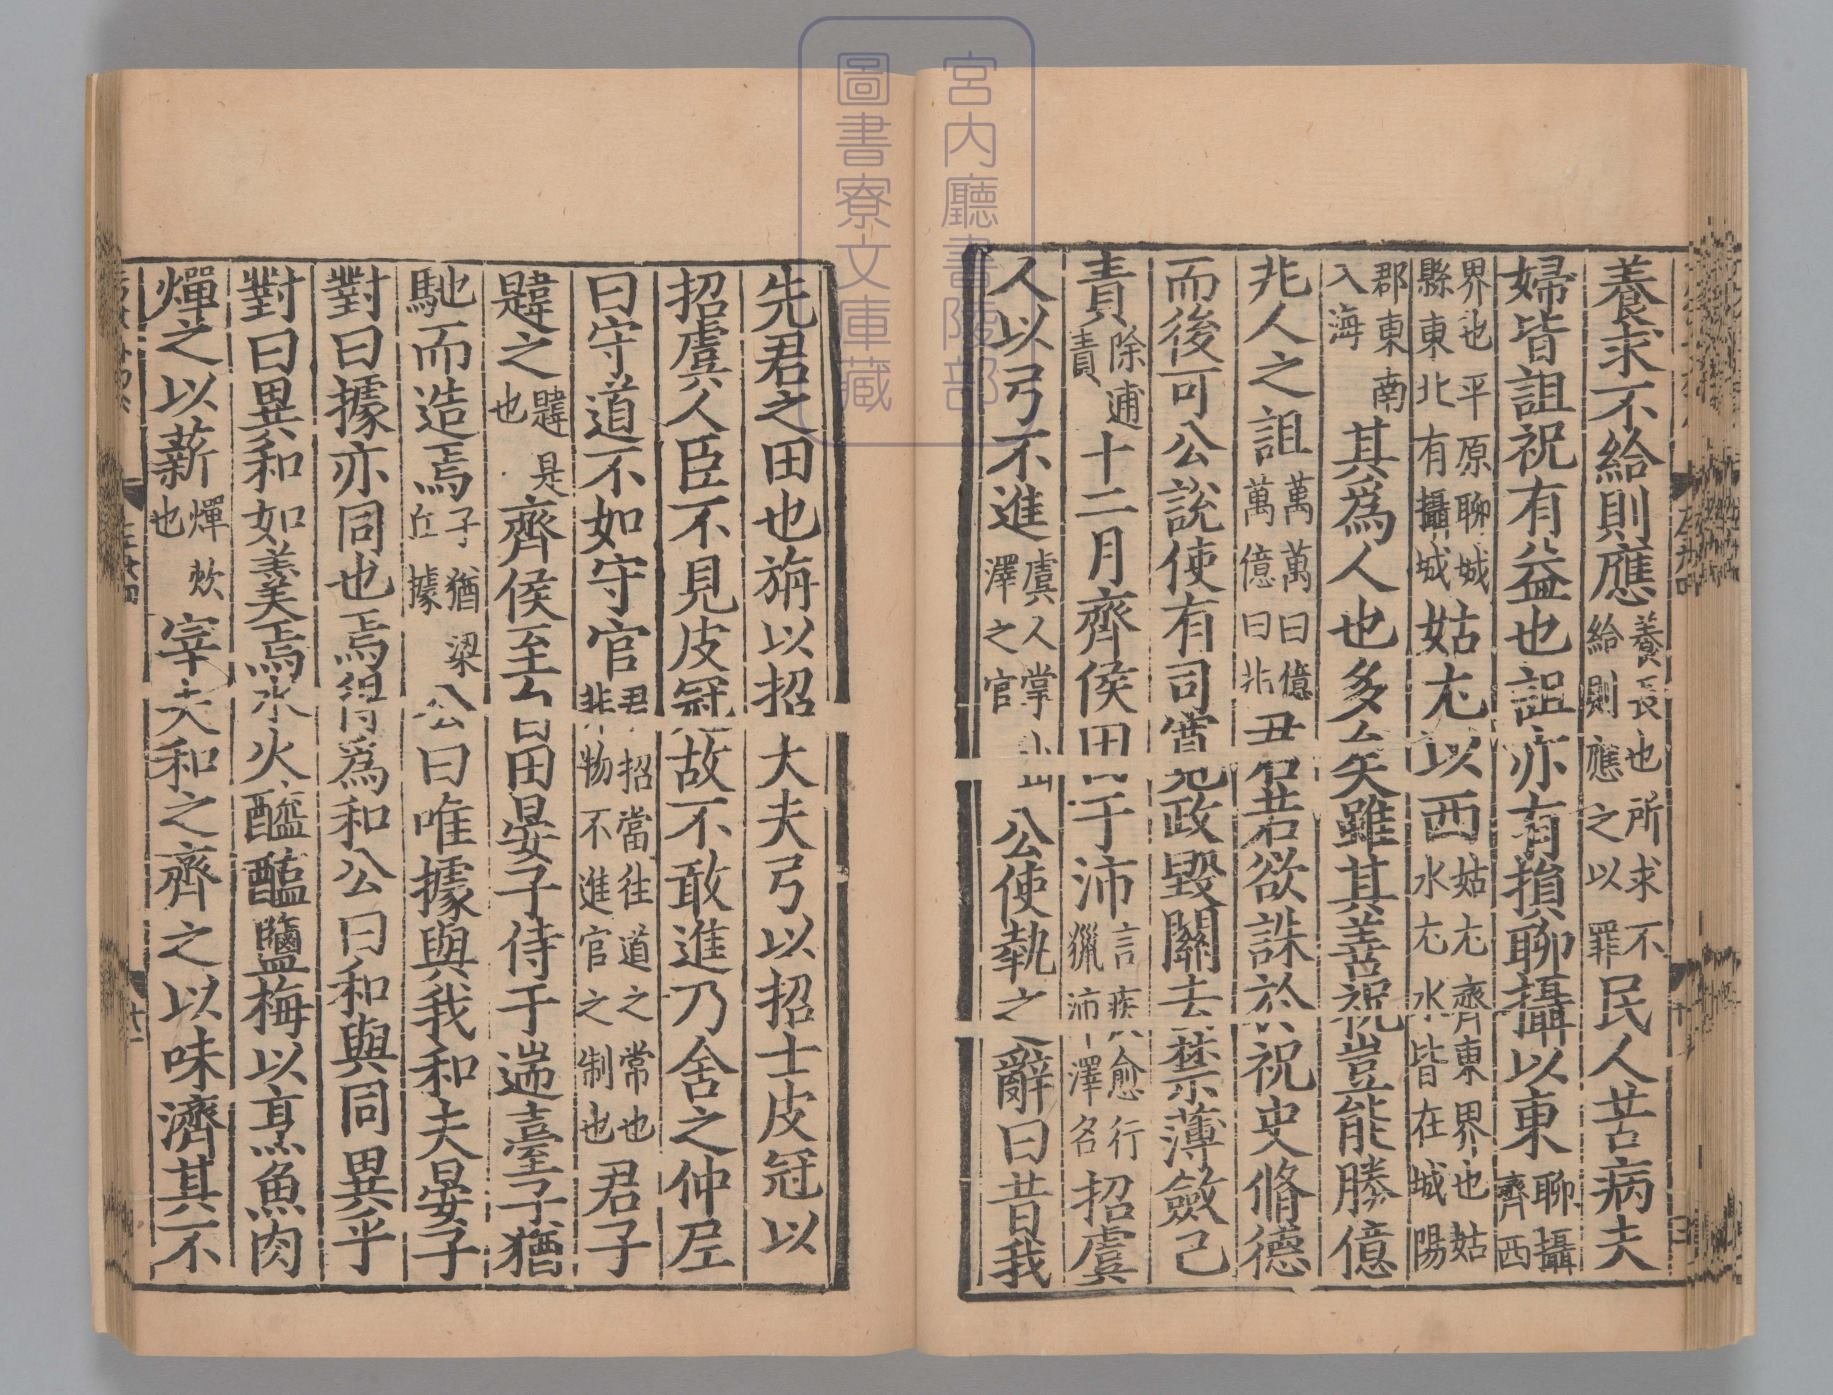 養求不給則應養長也所求不給則應之以罪民人苦病夫
婦皆詛祝有益也詛亦有損聊攝以東聊攝齊西
界也平原聊城縣東北有攝城姑尤以西姑尤齊東界也姑水尤水皆在城陽
郡東南入海其爲人也多矣雖其善祝豈能勝億
兆人之詛萬萬曰億萬億曰兆君若欲誅於祝史脩德
而後可公說使有司寬政毀關去禁薄斂已
責除逋責十二月齊侯田于沛言疾愈行獵沛澤名招虞
人以弓不進虞人掌山澤之官公使執之辭曰昔我
先君之田也旃以招大夫弓以招士皮冠以
招虞人臣不見皮冠故不敢進乃舍之仲尼
曰守道不如守官君招當往道之常也非物不進官之制也君子
韙之韙是也齊侯至自田晏子侍于遄臺子猶
馳而造焉子猶梁丘據公曰唯據與我和夫晏子
對曰據亦同也焉得爲和公曰和與同異乎
對曰異和如羹焉水火醯醢鹽梅以烹魚肉
燀之以薪燀炊也宰夫和之齊之以味濟其不
宮内廳書陵部
圖書寮文庫藏